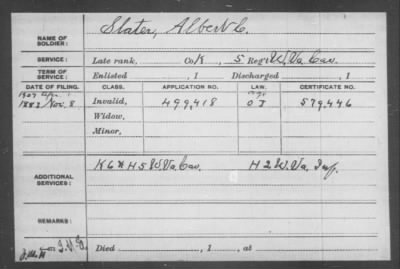 NAME OF SOLDIER: Slater, Albert C.
SERVICE: Late rank, Co K, 5 Reg't W. Va. Cav.
TERM OF SERVICE: Enlisted , 1 Discharged , 1
DATE OF FILING. CLASS. APPLICATION NO. LAW. CERTIFICATE NO.
1907
Age
1883 Nov. 8 Invalid, 499,418 O J 579,446
Widow,
Minor,
ADDITIONAL SERVICES: K 6 & H 5 W. Va. Cav. H 2 W. Va. Inf.
REMARKS:
Died , 1 , at